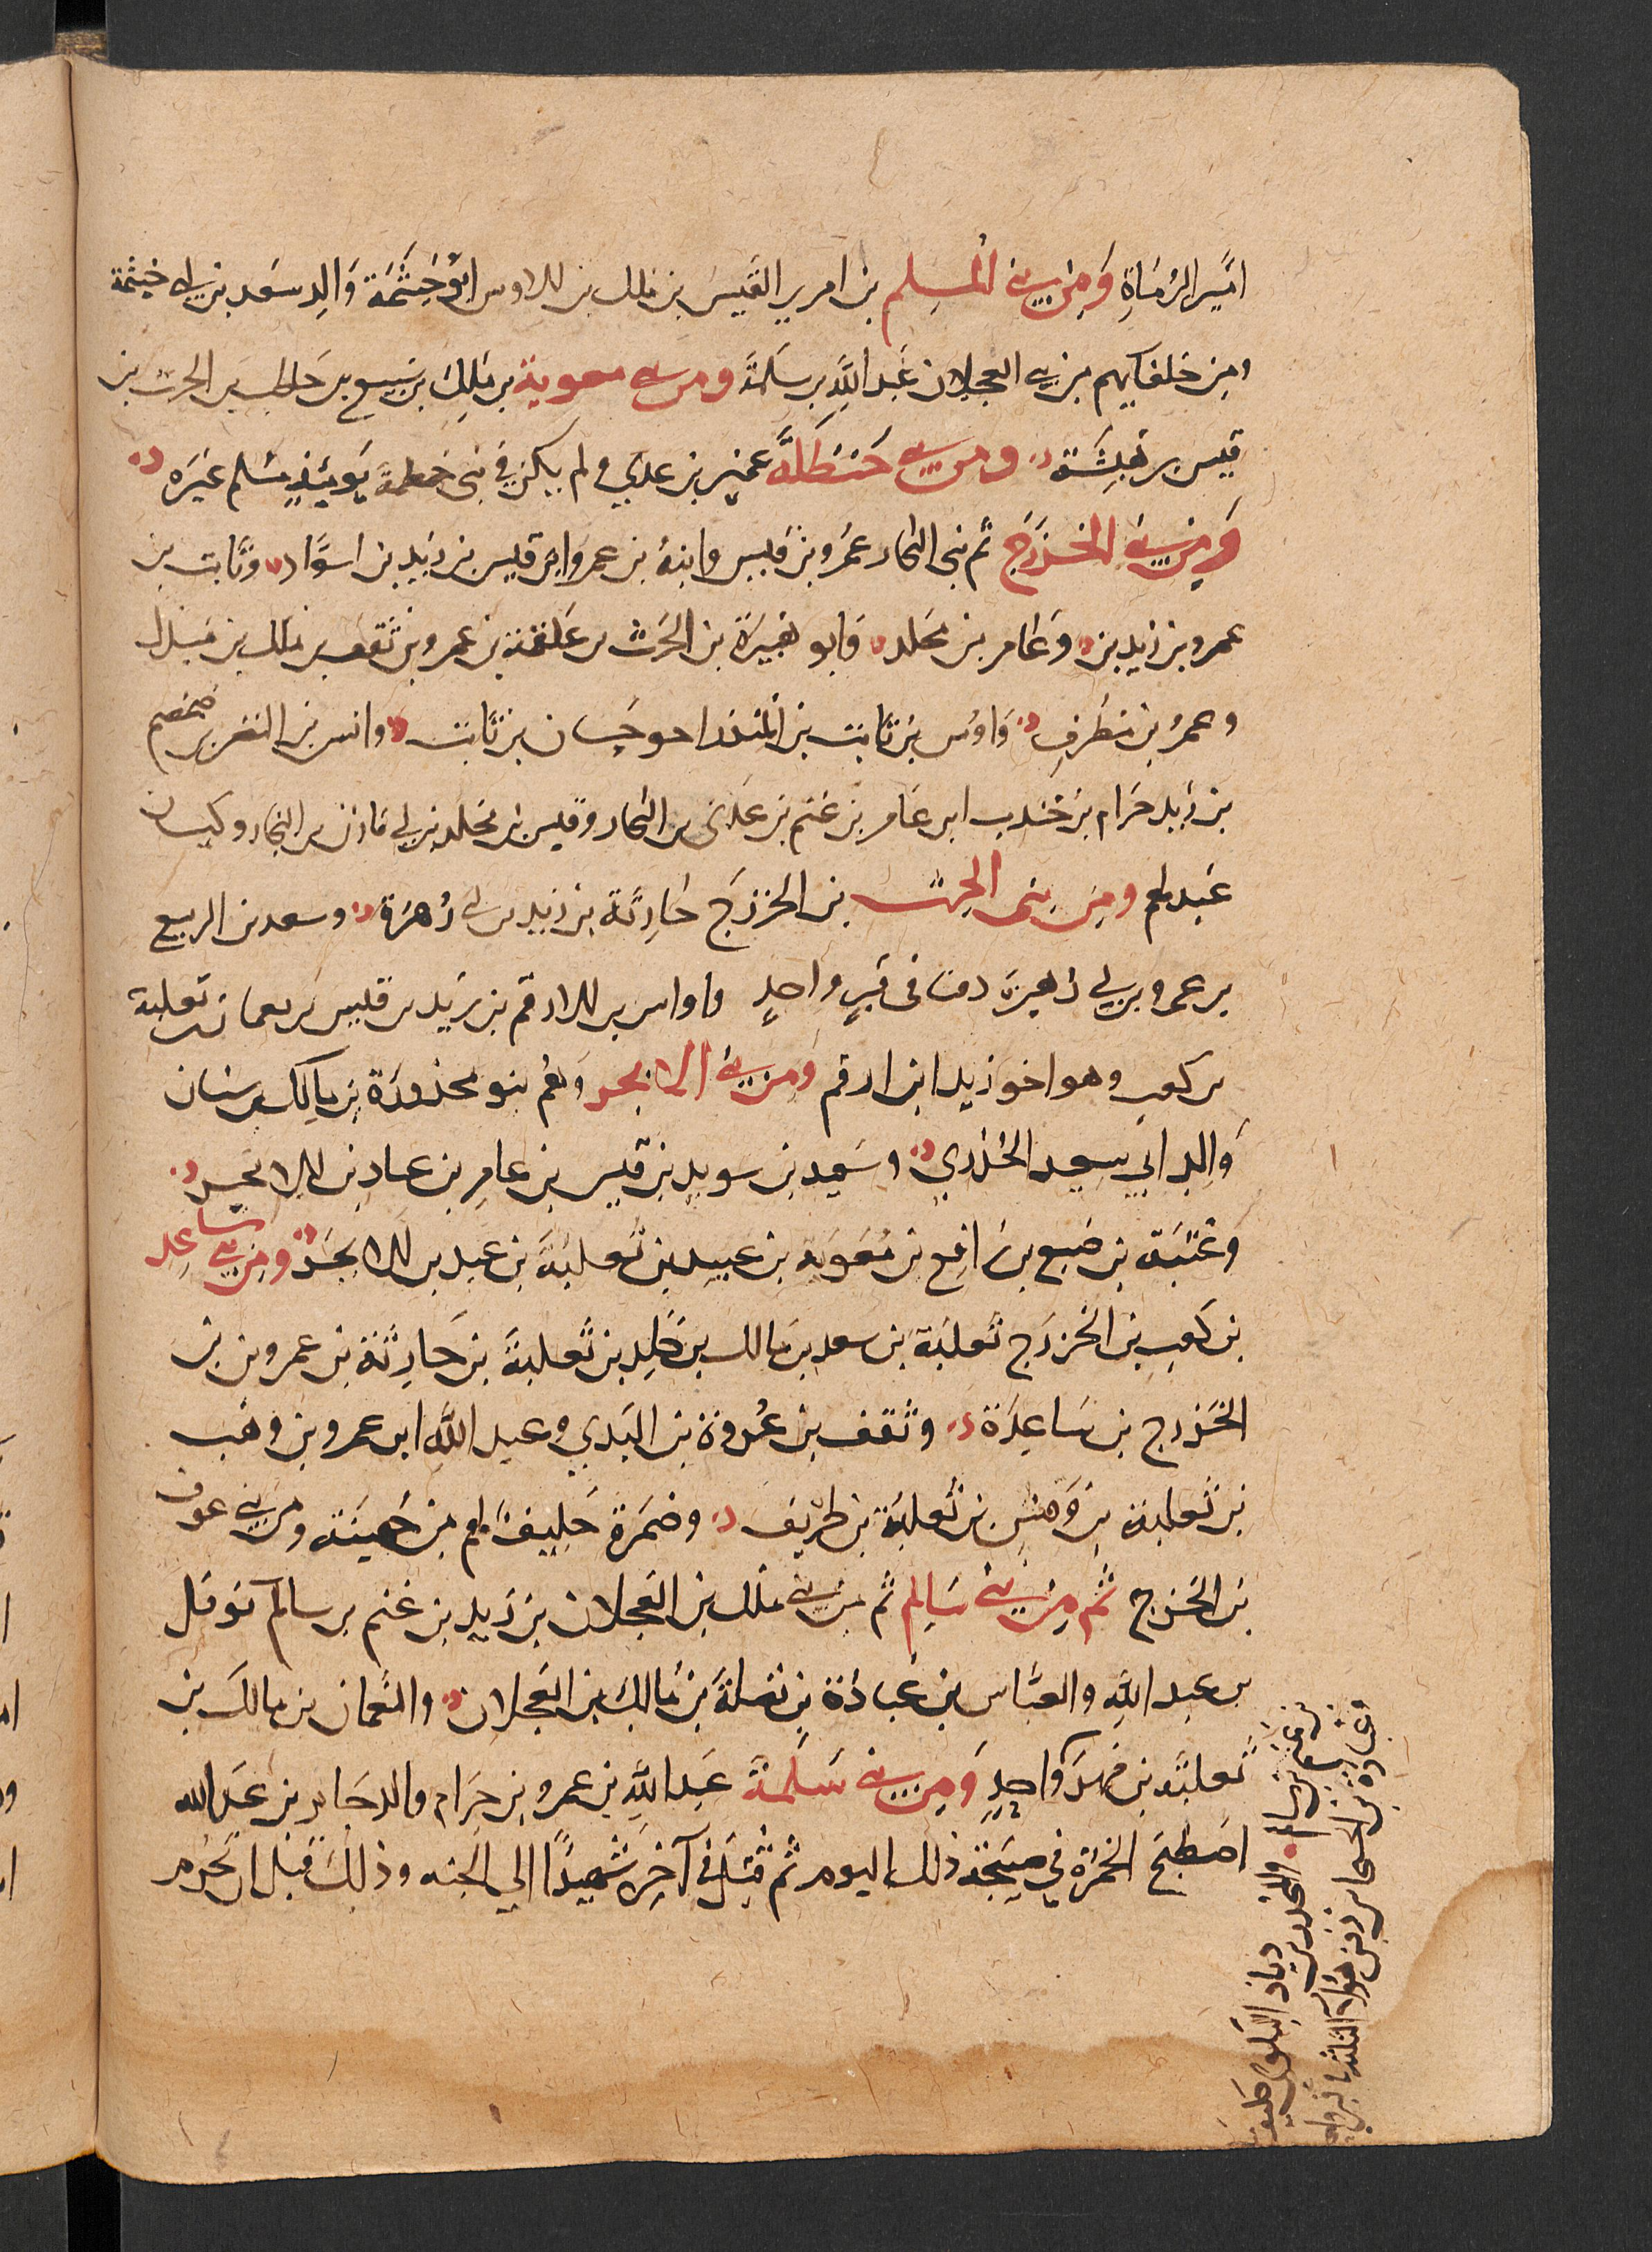 امير الرماة ومن بني المسلم بن امرىء القيس بن ملك بن الاوس ابو خيثمة والد سعد بن ابي خيثمة
ومن حلفايهم من بني العجلان عبد الله بن سلمة ومن بني معوية بن ملك بن سبيع بن حاطب بن الحرث بن
قيس بن هيشة ومن بني حنظلة عمير بن عدي ولم يكن في بني خطمة يومئذ مسلم غيره
ومن بني الخزرج ثم بني النجار عمرو بن قيس وابنه بن عمرو ابن قيس بن زيد بن اسواد وثابت بن
عمرو بن زيد بن وعامر بن مخلد وابو هبيرة بن الحرث بن علقمة بن عمرو بن ثقف بن ملك بن مبذل
وعمر بن مطرف واوس بن ثابت بن المنذر اخو حسان بن ثابت وانس بن النضر بن ضمضم
بن زيد حرام بن جندب ابن عامر بن غنم بن عدي بن النجار وقيس بن مخلد بن بني مازن بن النجار وكيسان
عبد لهم ومن بني الحرث بن الخزرج خارجة بن زيد بن ابي زهرة وسعد بن الربيع
بن عمرو بن ابي زهير دفنا في قبر واحد واواس بن الارقم بن زيد بن قيس بن نعمان بن ثعلبة
بن كعب وهو اخو زيد ابن ارقم ومن بني الابجر وهم بنو محذورة بن مالك بن سنان
والد ابي سعيد الخدري وسعيد بن سويد بن قيس بن عامر بن عباد بن الابجر
وعتبة بن ضبع بن رافع بن معوية بن عبيد بن ثعلبة بن عبد بن الابجر ومن بني ساعد
بن كعب بن الخزرج ثعلبة بن سعد بن مالك بن خالد بن ثعلبة بن حارثة بن عمرو بن بن
الخزرج بن ساعدة وثقف بن عروة بن البدي وعبد الله ابن عمرو بن وهب
بن ثعلبة بن وهس بن ثعلبة بن طريف وضمرة حليف لهم من جهينة ومن بني عوف
بن الخزرج ثم من بني سالم ثم من بني ملك بن العجلان بن زيد بن غنم بن سالم نوفل
بن عبد الله والعباس بن عبادة بن نضلة بن مالك بن العجلان والنعمان بن مالك بن
ثعلبة بن فهر واحد ومن بني سلمة عبد الله بن عمرو بن حرام والد جابر بن عبد الله
اصطبح الخمرة في صبيحة ذلك اليوم ثم قتل في آخره شهيدا الي الجنه وذلك قبل ان تحرم
والمجذر بن ذياد البلوي حليف
عبادة بن الحسحاس دفن هؤلاء الثلثة